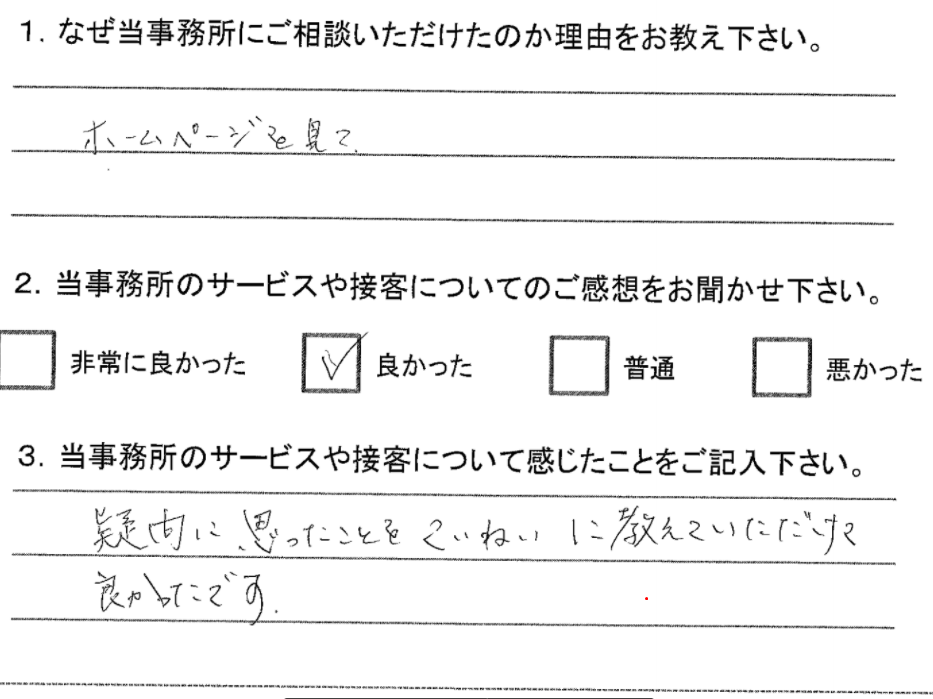 1. なぜ当事務所にご相談いただけたのか理由をお教え下さい。
ホームページを見て.
2. 当事務所のサービスや接客についてのご感想をお聞かせ下さい。
非常に良かった 良かった 普通 悪かった
3. 当事務所のサービスや接客について感じたことをご記入下さい。
疑問に思ったことをていねいに教えていただけて
良かったです.